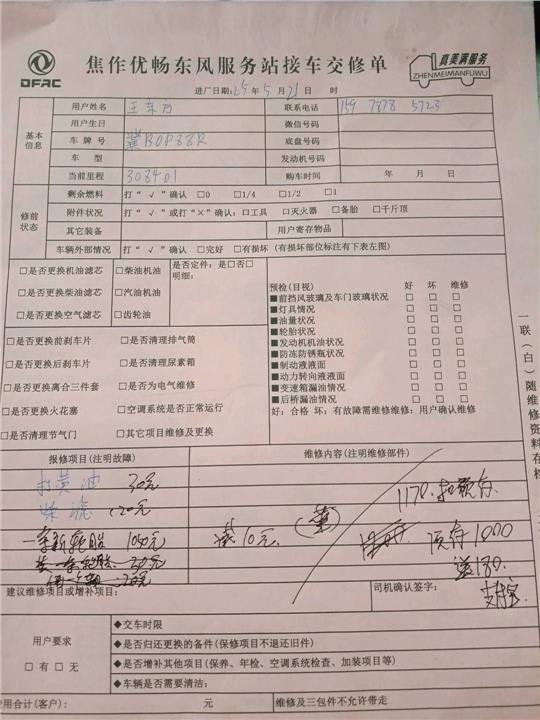 DFAC
焦作优畅东风服务站接车交修单
真美满服务
ZHENMEIMANFUWU
进厂日期:25年5月21日 时
基本信息
用户姓名 王东方 联系电话 159 7878 5723
用户生日 微信号码
车牌号 冀BOP88R 底盘号码
车型 发动机号码
当前里程 308401 购车时间 年 月 日
修前状态
剩余燃料 打“√”确认 □0 □1/4 □1/2 □1
附件状况 打“√”或打“×”确认:□工具 □灭火器 □备胎 □千斤顶
其它装备 用户寄存物品
车辆外部情况 打“√”确认 □完好 □有损坏(有损坏部位标注有下表左图)
□是否更换机油滤芯 □柴油机油
□是否更换柴油滤芯 □汽油机油
□是否更换空气滤芯 □齿轮油
是否定件:是□否□
明细:
□是否更换前刹车片 □是否清理排气筒
□是否更换后刹车片 □是否清理尿素箱
□是否更换离合三件套 □是否为电气维修
□是否更换火花塞 □空调系统是否正常运行
□是否清理节气门 □其它项目维修及更换
预检(目视) 好 坏 维修
■前挡风玻璃及车门玻璃状况 □ □ □
■灯具情况 □ □ □
■油量状况 □ □ □
■轮胎状况 □ □ □
■发动机机油状况 □ □ □
■防冻防锈瓶状况 □ □ □
■制动液液面 □ □ □
■动力转向液液面 □ □ □
■变速箱漏油情况 □ □ □
■后桥漏油情况 □ □ □
好:合格 坏:有故障需维修维修:用户确认维修
一联(白)随维修资料存档
报修项目(注明故障) 维修内容(注明维修部件)
打黄油 30元
120元
一条新轮胎 1050元 10元
1170
预存1000
送180
支付宝
建议维修项目或增补项目: 司机确认签字:
用户要求
□有 □无
◆交车时限
◆是否归还更换的备件(保修项目不退还旧件)
◆是否增补其他项目(保养、年检、空调系统检查、加装项目等)
◆车辆是否需要清洁:
费用合计(客户): 元 维修及三包件不允许带走